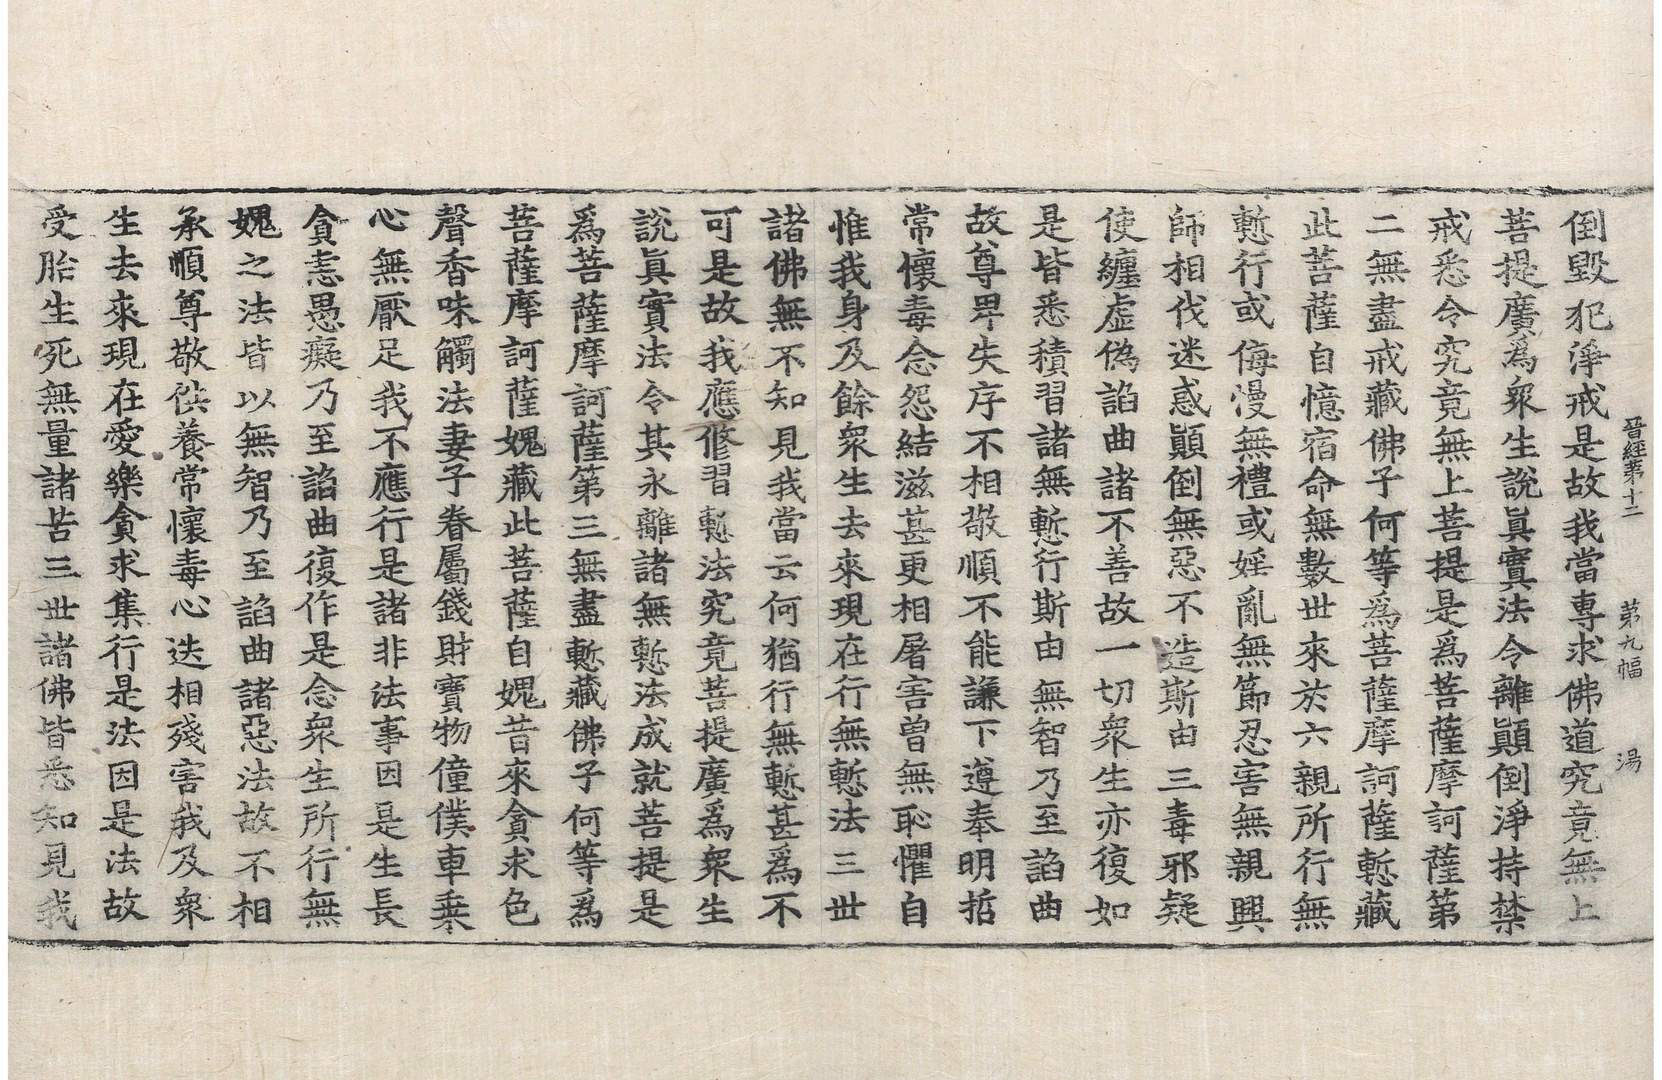 晉經第十二　第九幅　湯
倒毀犯淨戒是故我當專求佛道究竟無上
菩提廣爲衆生說眞實法令離顚倒淨持禁
戒悉令究竟無上菩提是爲菩薩摩訶薩第
二無盡戒藏佛子何等爲菩薩摩訶薩慙藏
此菩薩自憶宿命無數世來於六親所行無
慙行或侮慢無禮或婬亂無節忍害無親興
師相伐迷惑顚倒無惡不造斯由三毒邪疑
使纏虛僞諂曲諸不善故一切衆生亦復如
是皆悉積習諸無慙行斯由無智乃至諂曲
故尊卑失序不相敬順不能謙下遵奉明哲
常懷毒念怨結滋甚更相屠害曽無恥懼自
惟我身及餘衆生去來現在行無慙法三世
諸佛無不知見我當云何猶行無慙甚爲不
可是故我應修習慙法究竟菩提廣爲衆生
說眞實法令其永離諸無慙法成就菩提是
爲菩薩摩訶薩第三無盡慙藏佛子何等爲
菩薩摩訶薩媿藏此菩薩自媿昔來貪求色
聲香味觸法妻子眷屬錢財寶物僮僕車乘
心無厭足我不應行是諸非法事因是生長
貪恚愚癡乃至諂曲復作是念衆生所行無
媿之法皆以無智乃至諂曲諸惡法故不相
承順尊敬供養常懷毒心迭相殘害我及衆
生去來現在愛樂貪求集行是法因是法故
受胎生死無量諸苦三世諸佛皆悉知見我